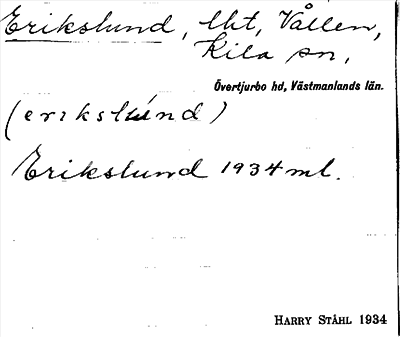 Erikslund, lht, Vallen,
Kila sn,
Övertjurbo hd, Västmanlands län.
(erikslúnd)
Erikslund 1934 ml.
HARRY STÅHL 1934